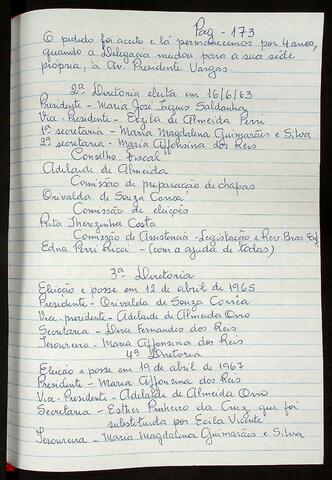 Pag - 173
O pedido foi aceito e lá permanecemos por 4 anos,
quando a Delegacia mudou para a sua séde
própria, à Av. Presidente Vargas.
2ª Diretoria eleita em 16/6/63
Presidente - Maria José Jaques Saldanha
Vice-Presidente - Elzita de Almeida Perri
1ª secretaria - Maria Magdalena Guimarães e Silva
2ª secretaria - Maria Affonsina dos Reis
Conselho Fiscal
Adelaide de Almeida
Comissão de preparação de chapas
Orivalda de Souza Correa
Comissão de eleições
Rita Therezinha Costa
Comissão de Assistência - Legislação e Rev. Bras. Enf.
Edna Perri Ricci - (com a ajuda de todas)
3ª Diretoria
Eleição e posse em 12 de abril de 1965
Presidente - Orivalda de Souza Correia
Vice-presidente - Adelaide de Almeida Orro
Secretaria - Dirce Fernandes dos Reis
Tesoureira - Maria Affonsina dos Reis
4ª Diretoria
Eleição e posse em 19 de abril de 1967
Presidente - Maria Affonsina dos Reis
Vice-Presidente - Adelaide de Almeida Orro
Secretaria - Esther Pinheiro da Cruz que foi
substituida por Ecila Vicente
Tesoureira - Maria Magdalena Guimarães e Silva